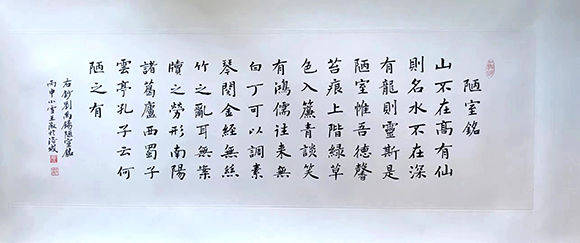 陋室銘
山不在高有仙
則名水不在深
有龍則靈斯是
陋室惟吾德馨
苔痕上階綠草
色入簾青談笑
有鴻儒往來無
白丁可以調素
琴閱金經無絲
竹之亂耳無案
牘之勞形南陽
諸葛廬西蜀子
雲亭孔子云何
陋之有
右鈔劉禹錫陋室銘
丙申小雪王